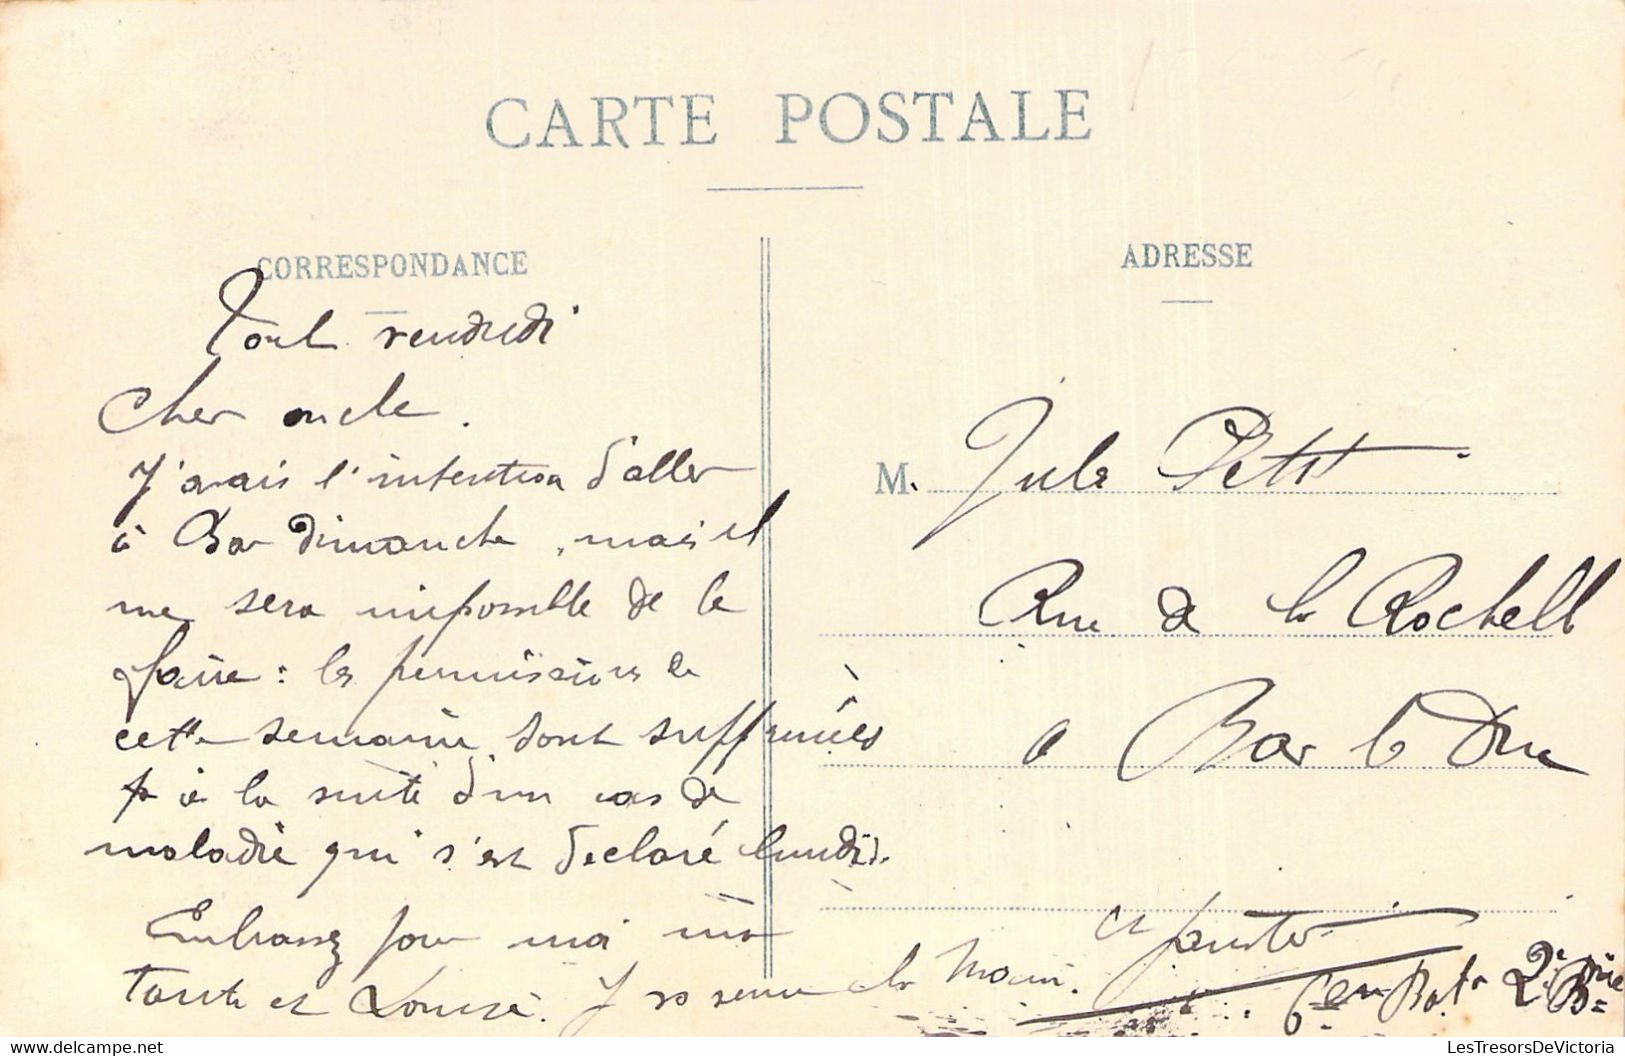 CARTE POSTALE
CORRESPONDANCE
Toul vendredi
Cher oncle.
J'avais l'intention d'aller
à Bar dimanche, mais il
me sera impossible de le
faire : les permissions de
cette semaine sont supprimées
à la suite d'un cas de
maladie qui s'est déclaré lundi.
Embrassez pour moi ma
tante et Louise. Je vs serre la main.
ADRESSE
M. Jules Petit
Rue de la Rochelle
à Bar le Duc
6em Bat 2e Brie
LesTresorsDeVictoria